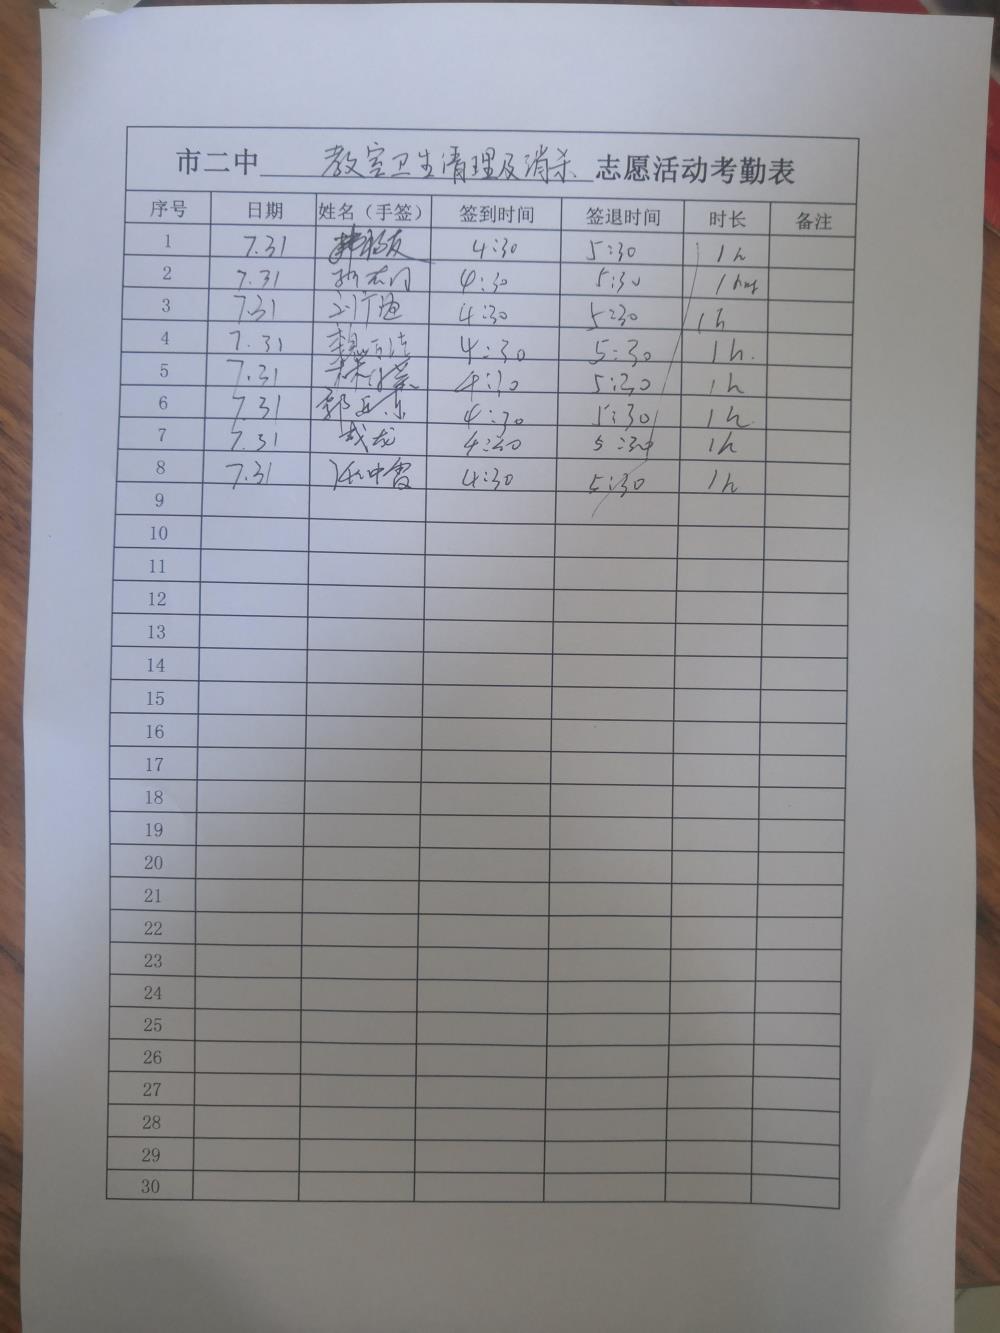 市二中 教室卫生清理及消杀 志愿活动考勤表
序号 日期 姓名（手签） 签到时间 签退时间 时长 备注
1 7.31 4:30 5:30 1h
2 7.31 4:30 5:30 1
3 7.31 4:30 5:30 1h
4 7.31 4:30 5:30 1h.
5 7.31 4:30 5:30 1h
6 7.31 4:30 5:30 1h
7 7.31 5:30 1h
8 7.31 4:30 5:30 1h
9
10
11
12
13
14
15
16
17
18
19
20
21
22
23
24
25
26
27
28
29
30